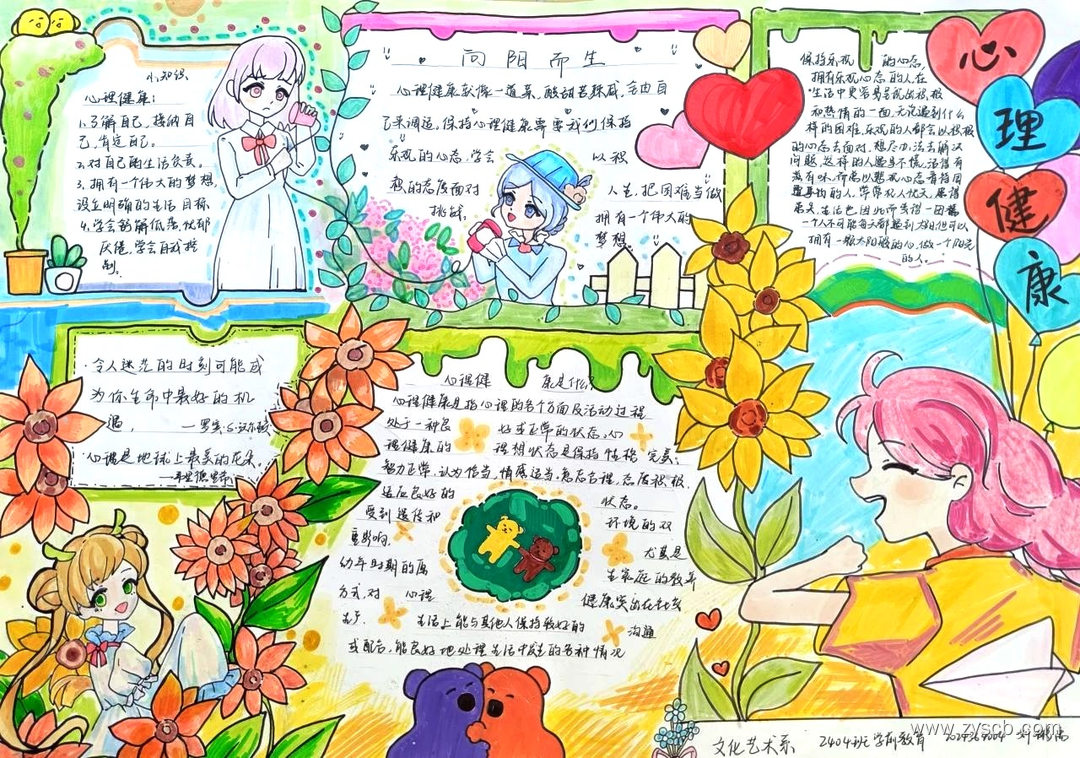 小知识
心理健康:
1.了解自己,接纳自
己,肯定自己。
2.对自己的生活负责。
3.拥有一个伟大的梦想
设立明确的生活目标
4.学会纾解低落,忧郁
厌倦,学会自我控
制.
向阳而生
心理健康就像一道菜,酸甜苦辣咸,全由自
己来调适。保持心理健康需要我们保持
乐观的心态,学会 以积
极的态度面对 人生,把困难当做
挑战. 拥有一个伟大的
梦想
保持乐观 的心态,
拥有乐观心态的人,在
生活中更容易呈现出积极
和热情的一面,无论遇到什么
样的困难,乐观的人都会以积极
的心态去面对,想尽办法去解决
问题,这样的人
人不可能每天都遇到太阳,但可以
拥有一颗太阳般的心,做一个阳光
的人。
心
理
健
康
令人迷茫的时刻可能成
为你生命中最好的机
遇,
心理是地球上最美的花朵.
心理健 康是什么?
心理健康是指心理的各个方面及活动过程
处于一种良 好或正常的状态,心
理健康的 理想状态是保持性格 完美,
智力正常,认为恰当,情感适当,意志合理,态度积极,
适应良好的 状态。
受到遗传和 环境的双
重影响. 尤其是
幼年时期的 生家庭的教养
方式,对 心理 健康
生活上能与其他人保持较好的 沟通
或配合,能良好地处理生活中发生的各种情况
文化艺术系 2404班学前教育
www.zyscb.com